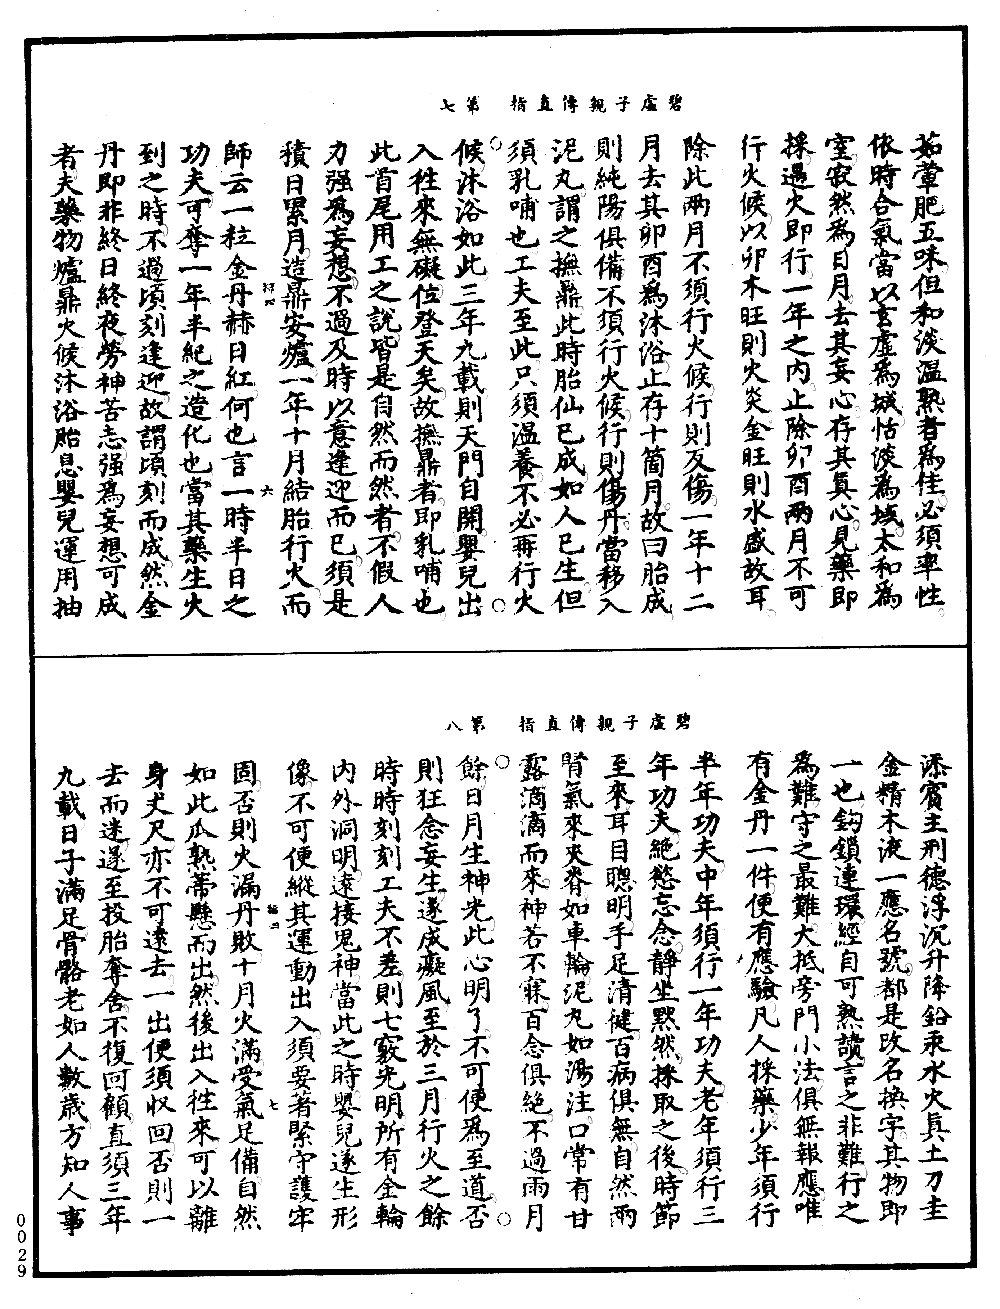 碧虛子親傳直指　第七
茹葷肥五味但和淡溫熟者為佳必須率性
依時合氣當以玄虛為城恬淡為域太和為
室寂然為日月去其妄心存其真心見藥即
採遇火即行一年之內止除卯酉兩月不可
行火候以卯木旺則火炎金旺則水盛故耳
除此兩月不須行火候行則反傷一年十二
月去其卯酉為沐浴止存十箇月故曰胎成
則純陽俱備不須行火候行則傷丹當移入
泥丸謂之撫鼎此時胎仙已成如人已生但
須乳哺也工夫至此只須溫養不必再行火
候沐浴如此三年九載則天門自開嬰兒出
入往來無礙位登天矣故撫鼎者即乳哺也
此首尾用工之說皆是自然而然者不假人
力强為妄想不過及時以意逢迎而已須是
積日累月造鼎安爐一年十月結胎行火而
師云一粒金丹赫日紅何也言一時半日之
功夫可奪一年半紀之造化也當其藥生火
到之時不過頃刻逢迎故謂頃刻而成然金
丹即非終日終夜勞神苦志强為妄想可成
者夫藥物爐鼎火候沐浴胎息嬰兒運用抽
六
碧虛子親傳直指　第八
添賓主刑德浮沉升降鉛汞水火真土刀圭
金精木液一應名號都是改名換字其物即
一也鈎鎖連環經自可熟讀言之非難行之
為難守之最難大抵旁門小法俱無報應唯
有金丹一件便有應驗凡人採藥少年須行
半年功夫中年須行一年功夫老年須行三
年功夫絕慾忘念靜坐默然採取之後時節
至來耳目聰明手足清健百病俱無自然兩
腎氣來夾脊如車輪泥丸如湯注口常有甘
露滴滴而來神若不寐百念俱絕不過兩月
餘日月生神光此心明了不可便為至道否
則狂念妄生遂成癡風至於三月行火之餘
時時刻刻工夫不差則七竅光明所有金輪
內外洞明遠接鬼神當此之時嬰兒遂生形
像不可便縱其運動出入須要著緊守護牢
固否則火漏丹敗十月火滿受氣足備自然
如此瓜熟蒂懸而出然後出入往來可以離
身丈尺亦不可遠去一出便須收回否則一
去而迷遂至投胎奪舍不復回顧直須三年
九載日子滿足骨骼老如人數歲方知人事
七
0029